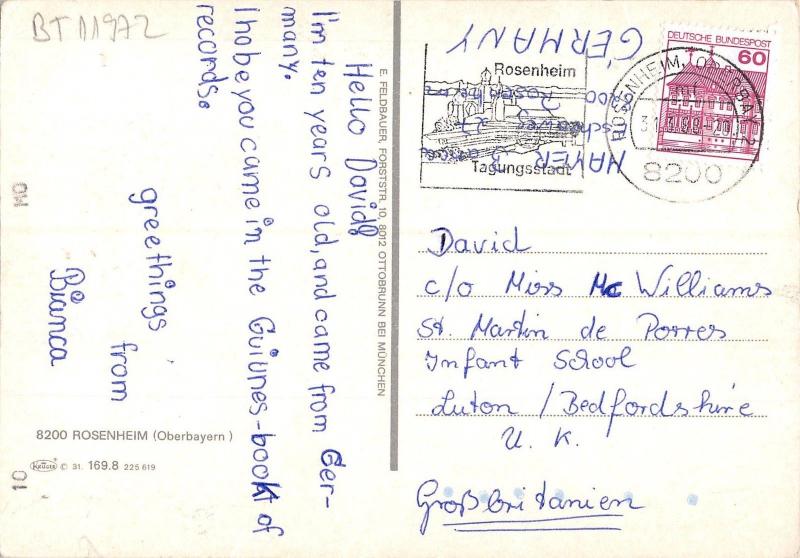 BT 11972
Hello David!
I'm ten years old, and came from Ger-
many.
I hobe you came in the Guiunes-bookt of
records.
greethings
from
Bianca
E. FELDBAUER, FORSTSTR. 10, 8012 OTTOBRUNN BEI MÜNCHEN
8200 ROSENHEIM (Oberbayern)
KRÜGER © 31. 169.8 225 619
OM
10
GERMANY
8200
MAYER B
Rosenheim
Tagungsstadt
DEUTSCHE BUNDESPOST
60
8200
David
c/o Miss Mc Williams
St. Martin de Porres
Infant School
Luton / Bedfordshire
U. K.
Großbritanien